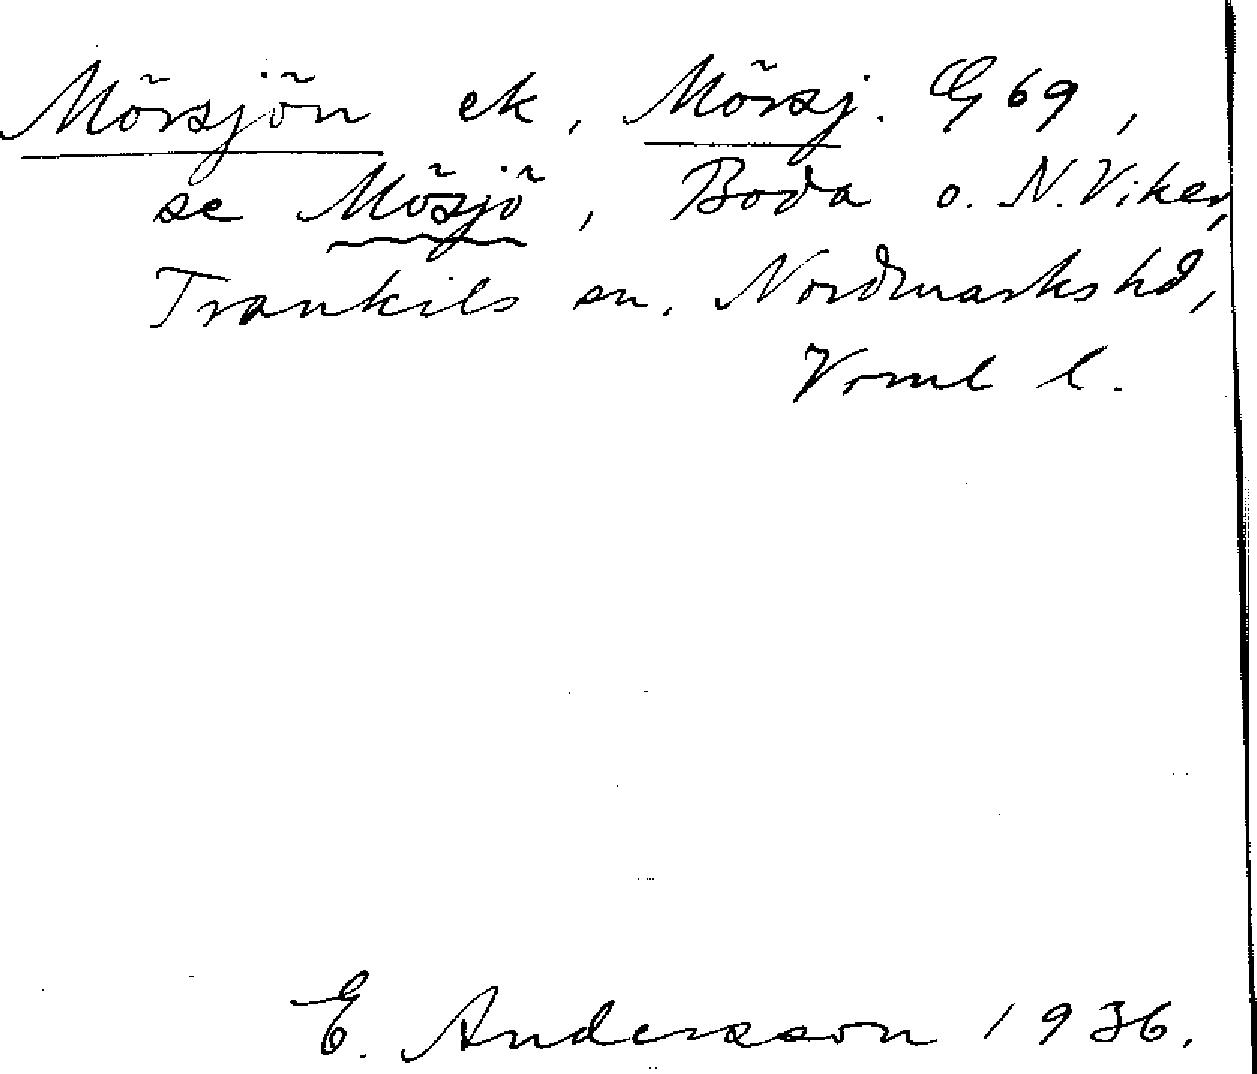 Mörsjön ek, Mörsj. G 69,
se Mösjö, Boda o. N. Viken,
Trankils sn, Nordmarks hd,
Vrml l.
E. Andersson 1936.